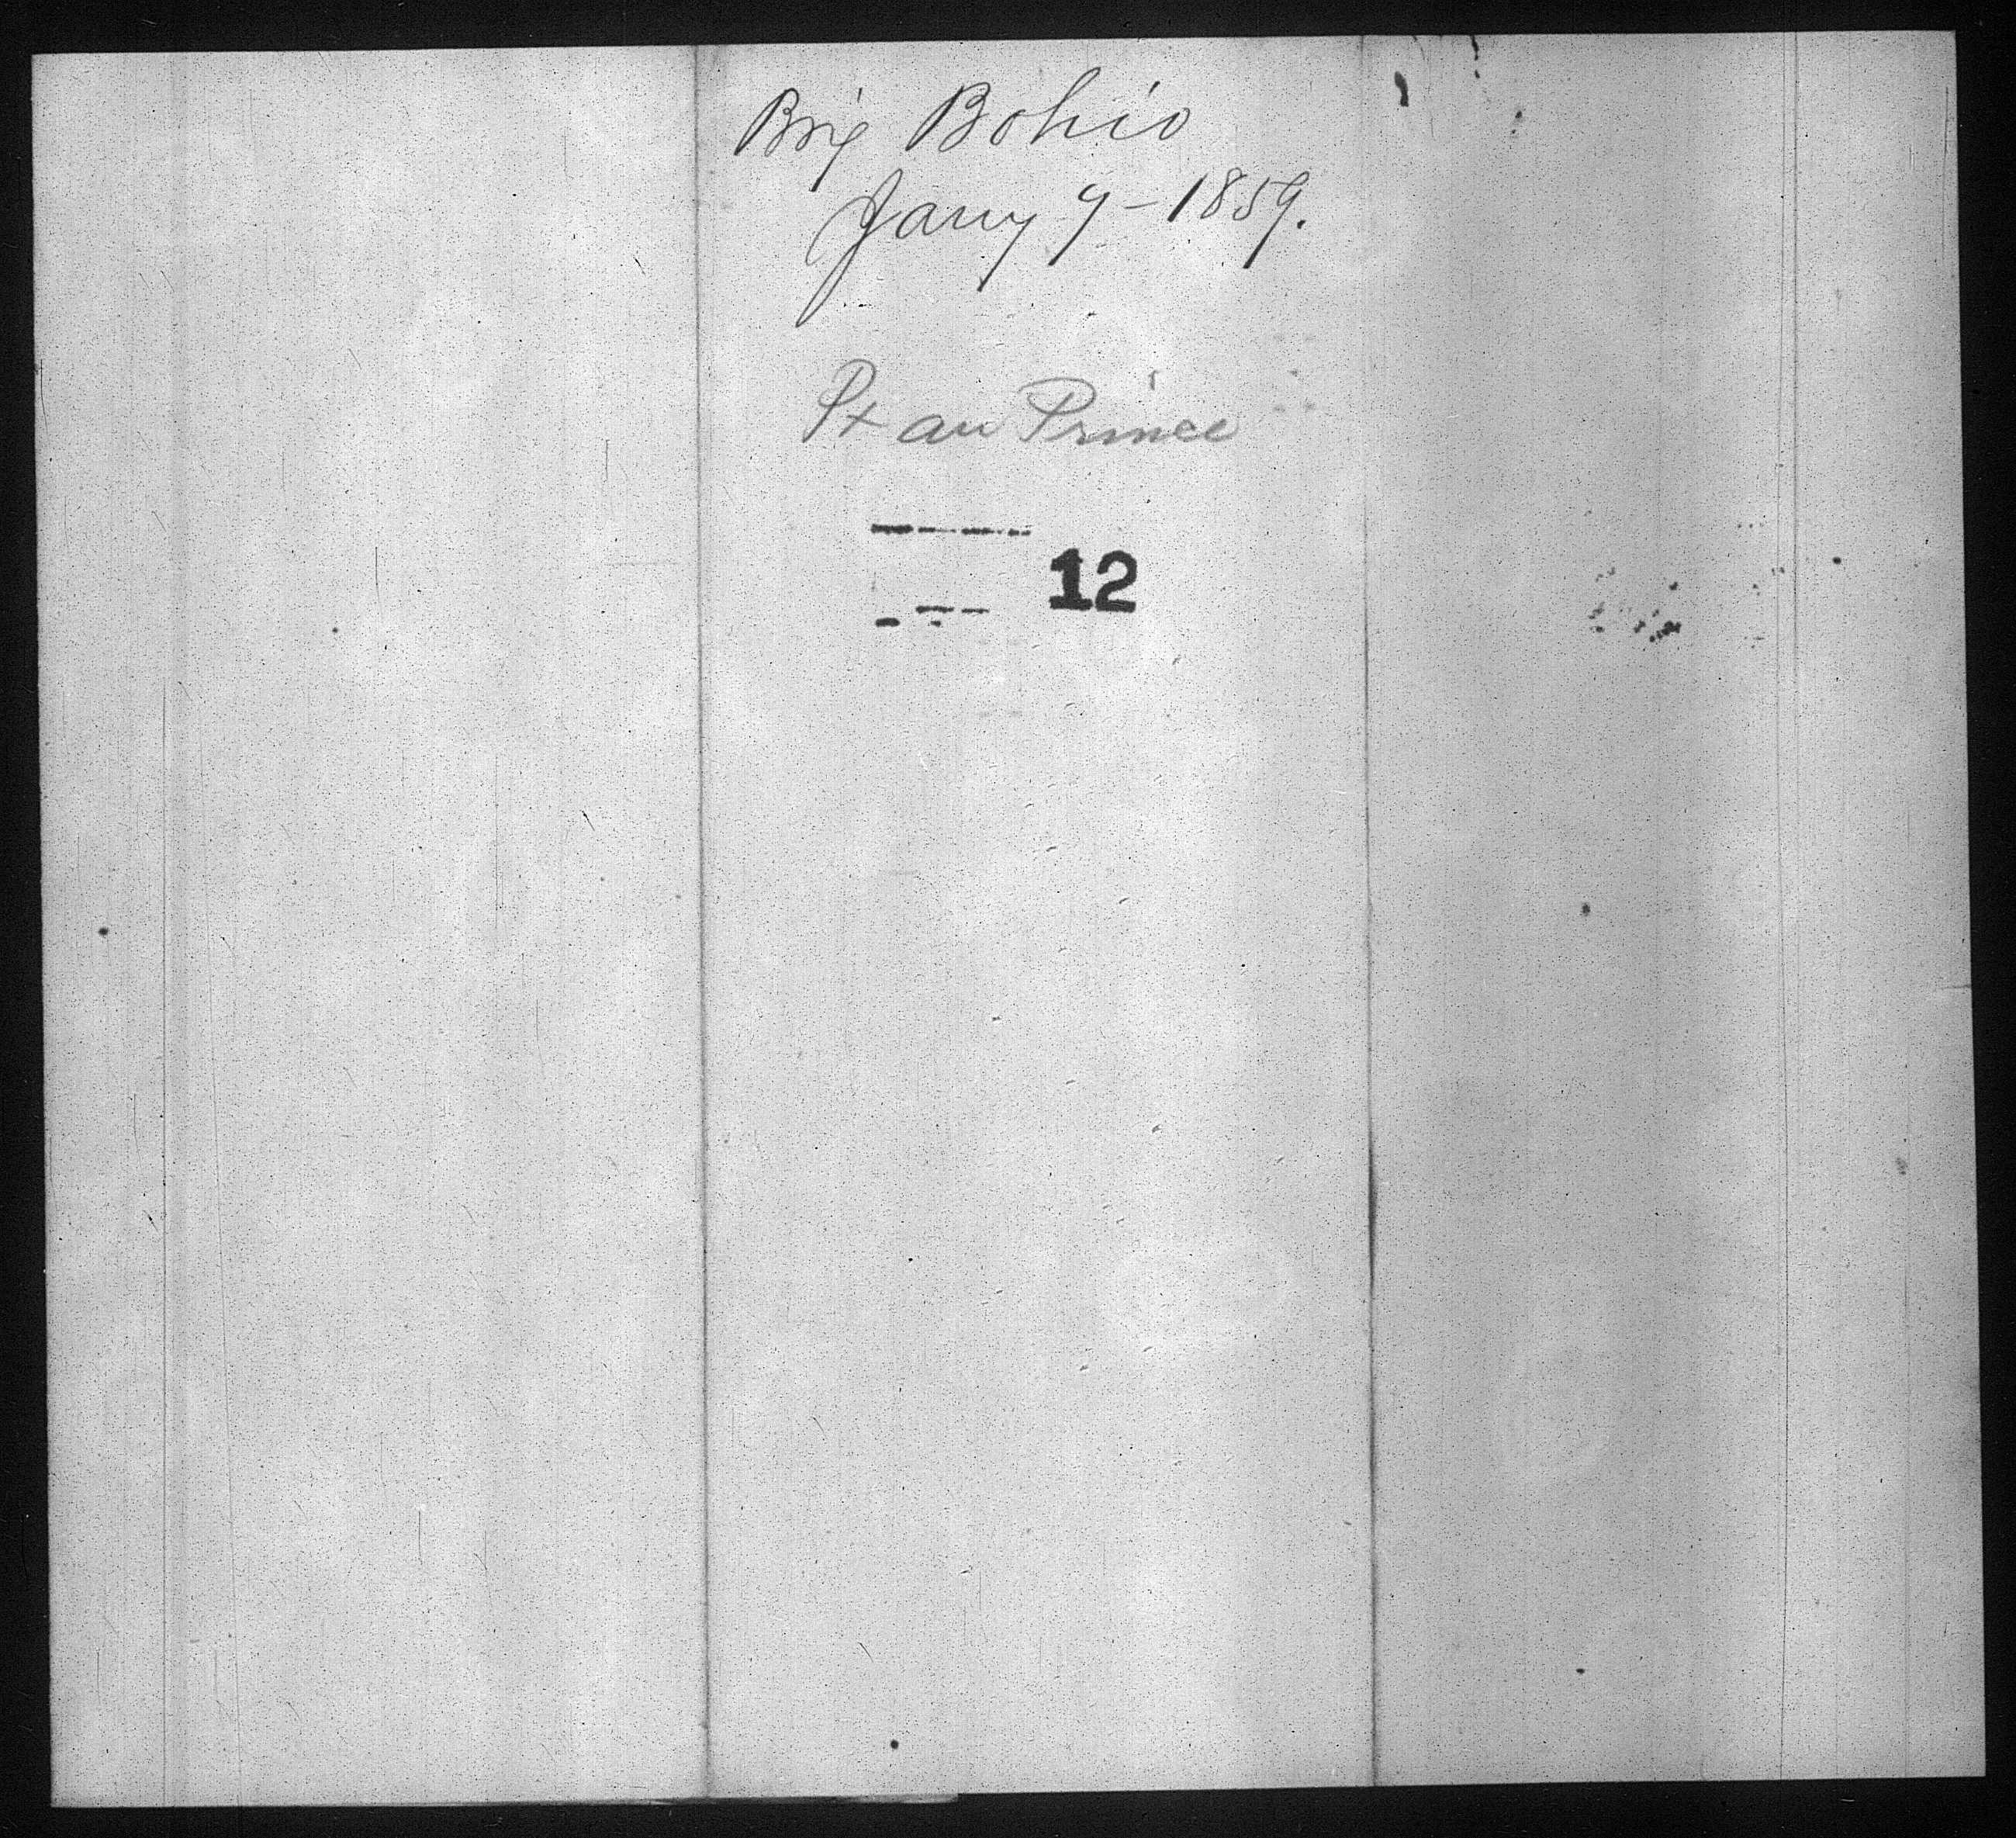 Brig Bohio
Jany 9 - 1859.
Pt au Prince
12